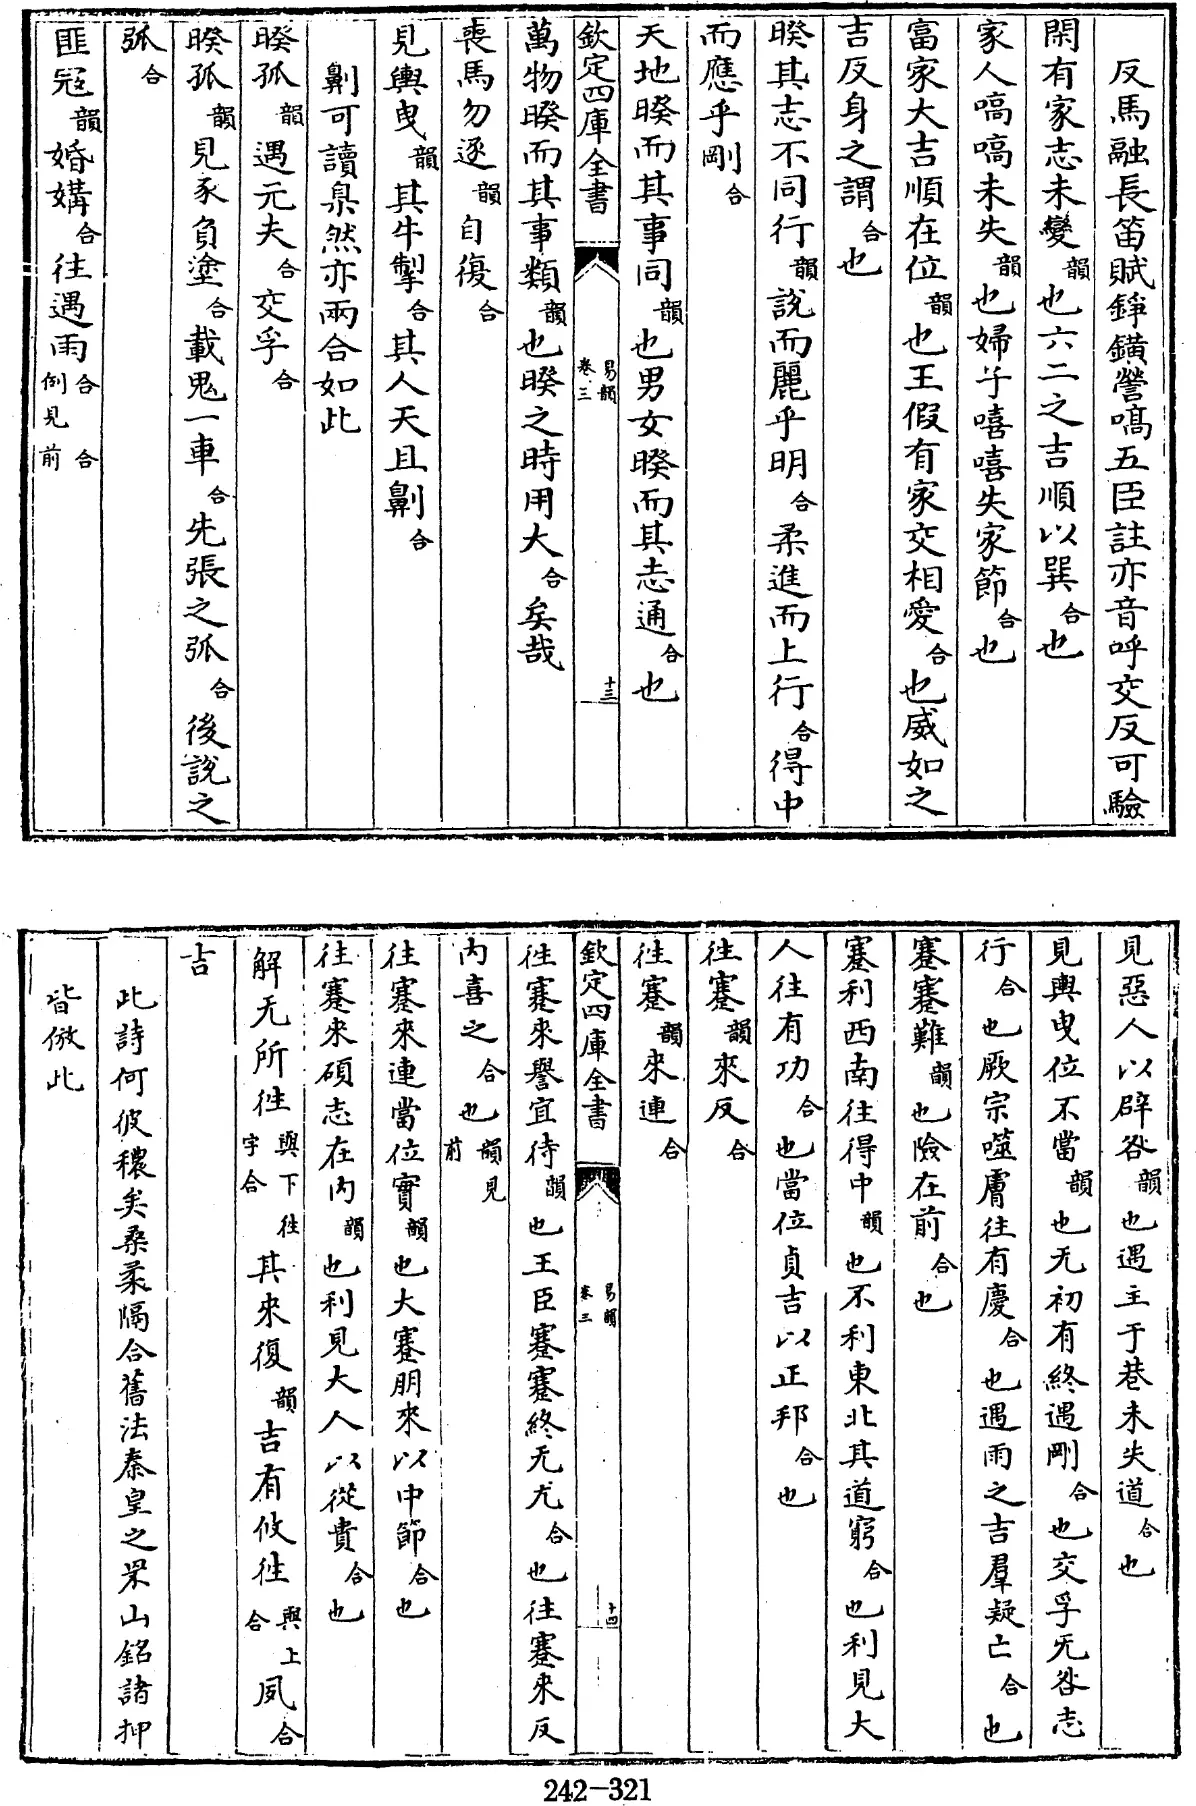 反馬融長笛賦錚鐄謍嗃五臣註亦音呼交反可驗
閑有家志未變韻也六二之吉順以巽合也
家人嗃嗃未失韻也婦子嘻嘻失家節合也
富家大吉順在位韻也王假有家交相愛合也威如之
吉反身之謂合也
睽其志不同行韻說而麗乎明合柔進而上行合得中
而應乎剛合
天地睽而其事同韻也男女睽而其志通合也
欽定四庫全書 易韻卷三 十三
萬物睽而其事類韻也睽之時用大合矣哉
喪馬勿逐韻自復合
見輿曳韻其牛掣合其人天且劓合
劓可讀臬然亦兩合如此
睽孤韻遇元夫合交孚合
睽孤韻見豕負塗合載鬼一車合先張之弧合後說之
弧合
匪冦韻婚媾合往遇雨合合例見前
見惡人以辟咎韻也遇主于巷未失道合也
見輿曳位不當韻也无初有終遇剛合也交孚无咎志
行合也厥宗噬膚往有慶合也遇雨之吉羣疑亡合也
蹇蹇難韻也險在前合也
蹇利西南往得中韻也不利東北其道窮合也利見大
人往有功合也當位貞吉以正邦合也
往蹇韻來反合
往蹇韻來連合
欽定四庫全書 易韻卷三 十四
往蹇來譽宜待韻也王臣蹇蹇終无尤合也往蹇來反
内喜之合也韻見前
往蹇來連當位實韻也大蹇朋來以中節合也
往蹇來碩志在内韻也利見大人以從貴合也
解无所往與下往字合其來復韻吉有攸往與上合夙合
吉
此詩何彼穠矣桑柔隔合舊法秦皇之罘山銘諸抑
皆倣此
242-321